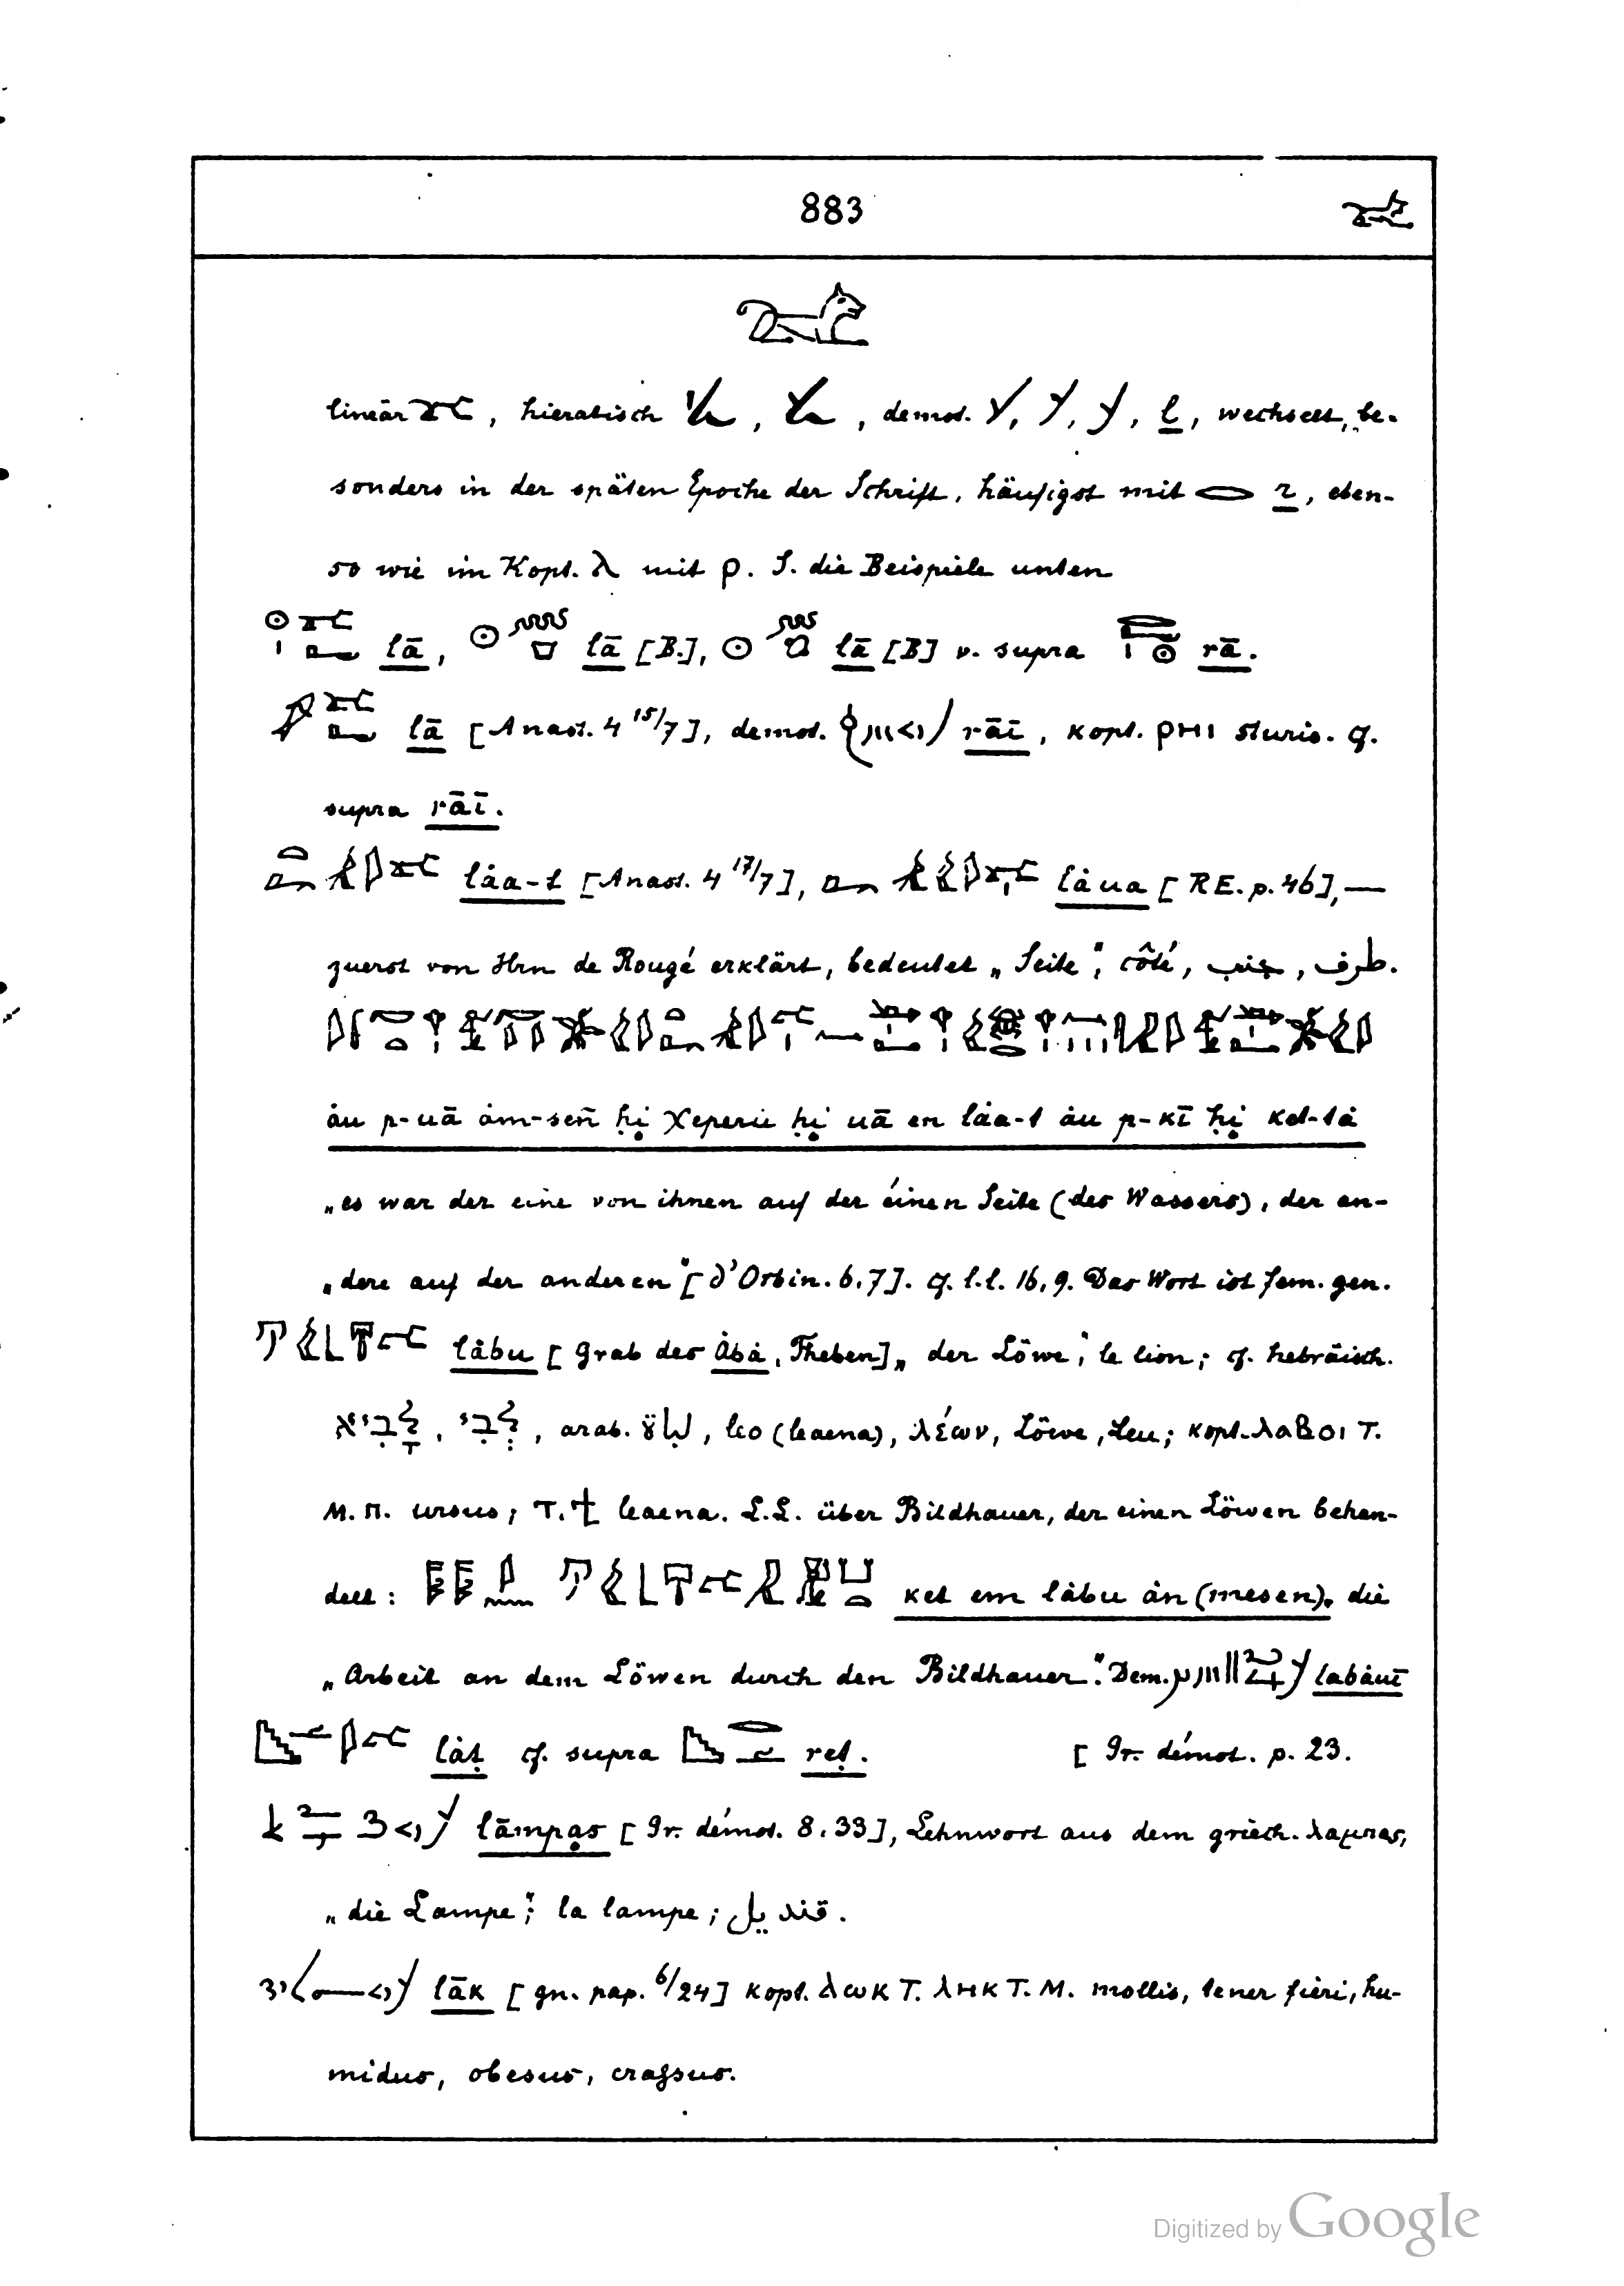 883
linear, hieratisch, , demot. , , , l, wechselt, be-
sonders in der späten Epoche der Schrift, häufigst mit r, eben-
so wie im Kopt. λ mit ρ. S. die Beispiele unten
lā, lā [B.], lā [B] v. supra rā.
lā [Anast. 4 15/7], demot. rāī, kopt. ⲣⲏⲓ sturio. cf.
supra rāī.
låa-t [Anast. 4 17/7], låua [RE. p. 46], —
zuerst von Hrn de Rougé erklärt, bedeutet „Seite“, côté, جنب, طرف.
åu p-uā åm-señ ḥi χeperu ḥi uā en låa-t åu p-kī ḥi ket-tå
„es war der eine von ihnen auf der éinen Seite (des Wassers), der an-
„dere auf der anderen“ [d'Orbin. 6,7]. cf. l.l. 16,9. Das Wort ist fem. gen.
låbu [Grab des Åbå, Theben] „der Löwe“, le lion; cf. hebräisch.
לָבִיא, לְבִי, arab. لبأة, leo (leaena), λέων, Löwe, Leu; kopt. ⲗⲁⲃⲟⲓ T.
M. π. ursus; T. leaena. L.L. über Bildhauer, der einen Löwen behan-
delt: ket em låbu ån (mesen), die
„Arbeit an dem Löwen durch den Bildhauer“. Dem. labåuī
låṭ cf. supra reṭ. [Gr. démot. p. 23.
lāmpas [Gr. démot. 8,33], Lehnwort aus dem griech. λαμπας,
„die Lampe“; la lampe; قنديل.
lāk [gn. pap. 6/24] kopt. ⲗⲱⲕ T. ⲗⲏⲕ T. M. mollis, tener fieri, hu-
midus, obesus, crassus.
Digitized by Google